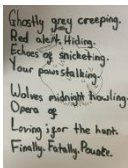 Ghostly grey creeping.
Red alert. Hiding.
Echoes of snicketing.
Your paws stalking.
Wolves midnight howling.
Opera of
Loving is for the hunt.
Finally. Fatally. Pounce.